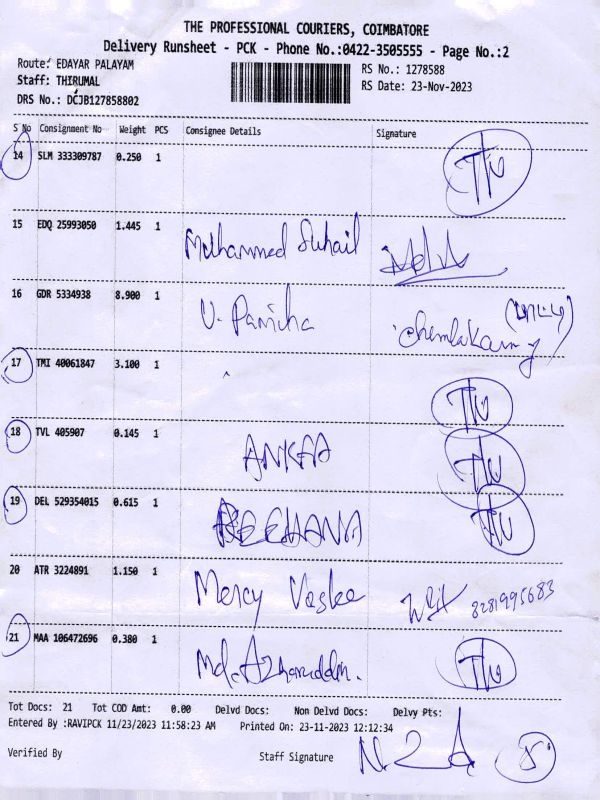 THE PROFESSIONAL COURIERS, COIMBATORE
Delivery Runsheet - PCK - Phone No.:0422-3505555 - Page No.:2
Route: EDAYAR PALAYAM
RS No.: 1278588
Staff: THIRUMAL
RS Date: 23-Nov-2023
DRS No.: DCJB127858802
S No Consignment No Weight PCS Consignee Details Signature
14 SLM 333309787 0.250 1
15 EDQ 25993050 1.445 1 Mohammed Suhail
16 GDR 5334938 8.900 1 U.
17 TMI 40061847 3.100 1
18 TVL 405907 0.145 1 ANKAA
19 DEL 529354015 0.615 1 REEHANA
20 ATR 3224891 1.150 1 Mercy 8281995683
21 MAA 106472696 0.380 1 Md. Azharuddin.
Tot Docs: 21 Tot COD Amt: 0.00 Delvd Docs: Non Delvd Docs: Delvy Pts:
Entered By :RAVIPCK 11/23/2023 11:58:23 AM Printed On: 23-11-2023 12:12:34
Verified By Staff Signature